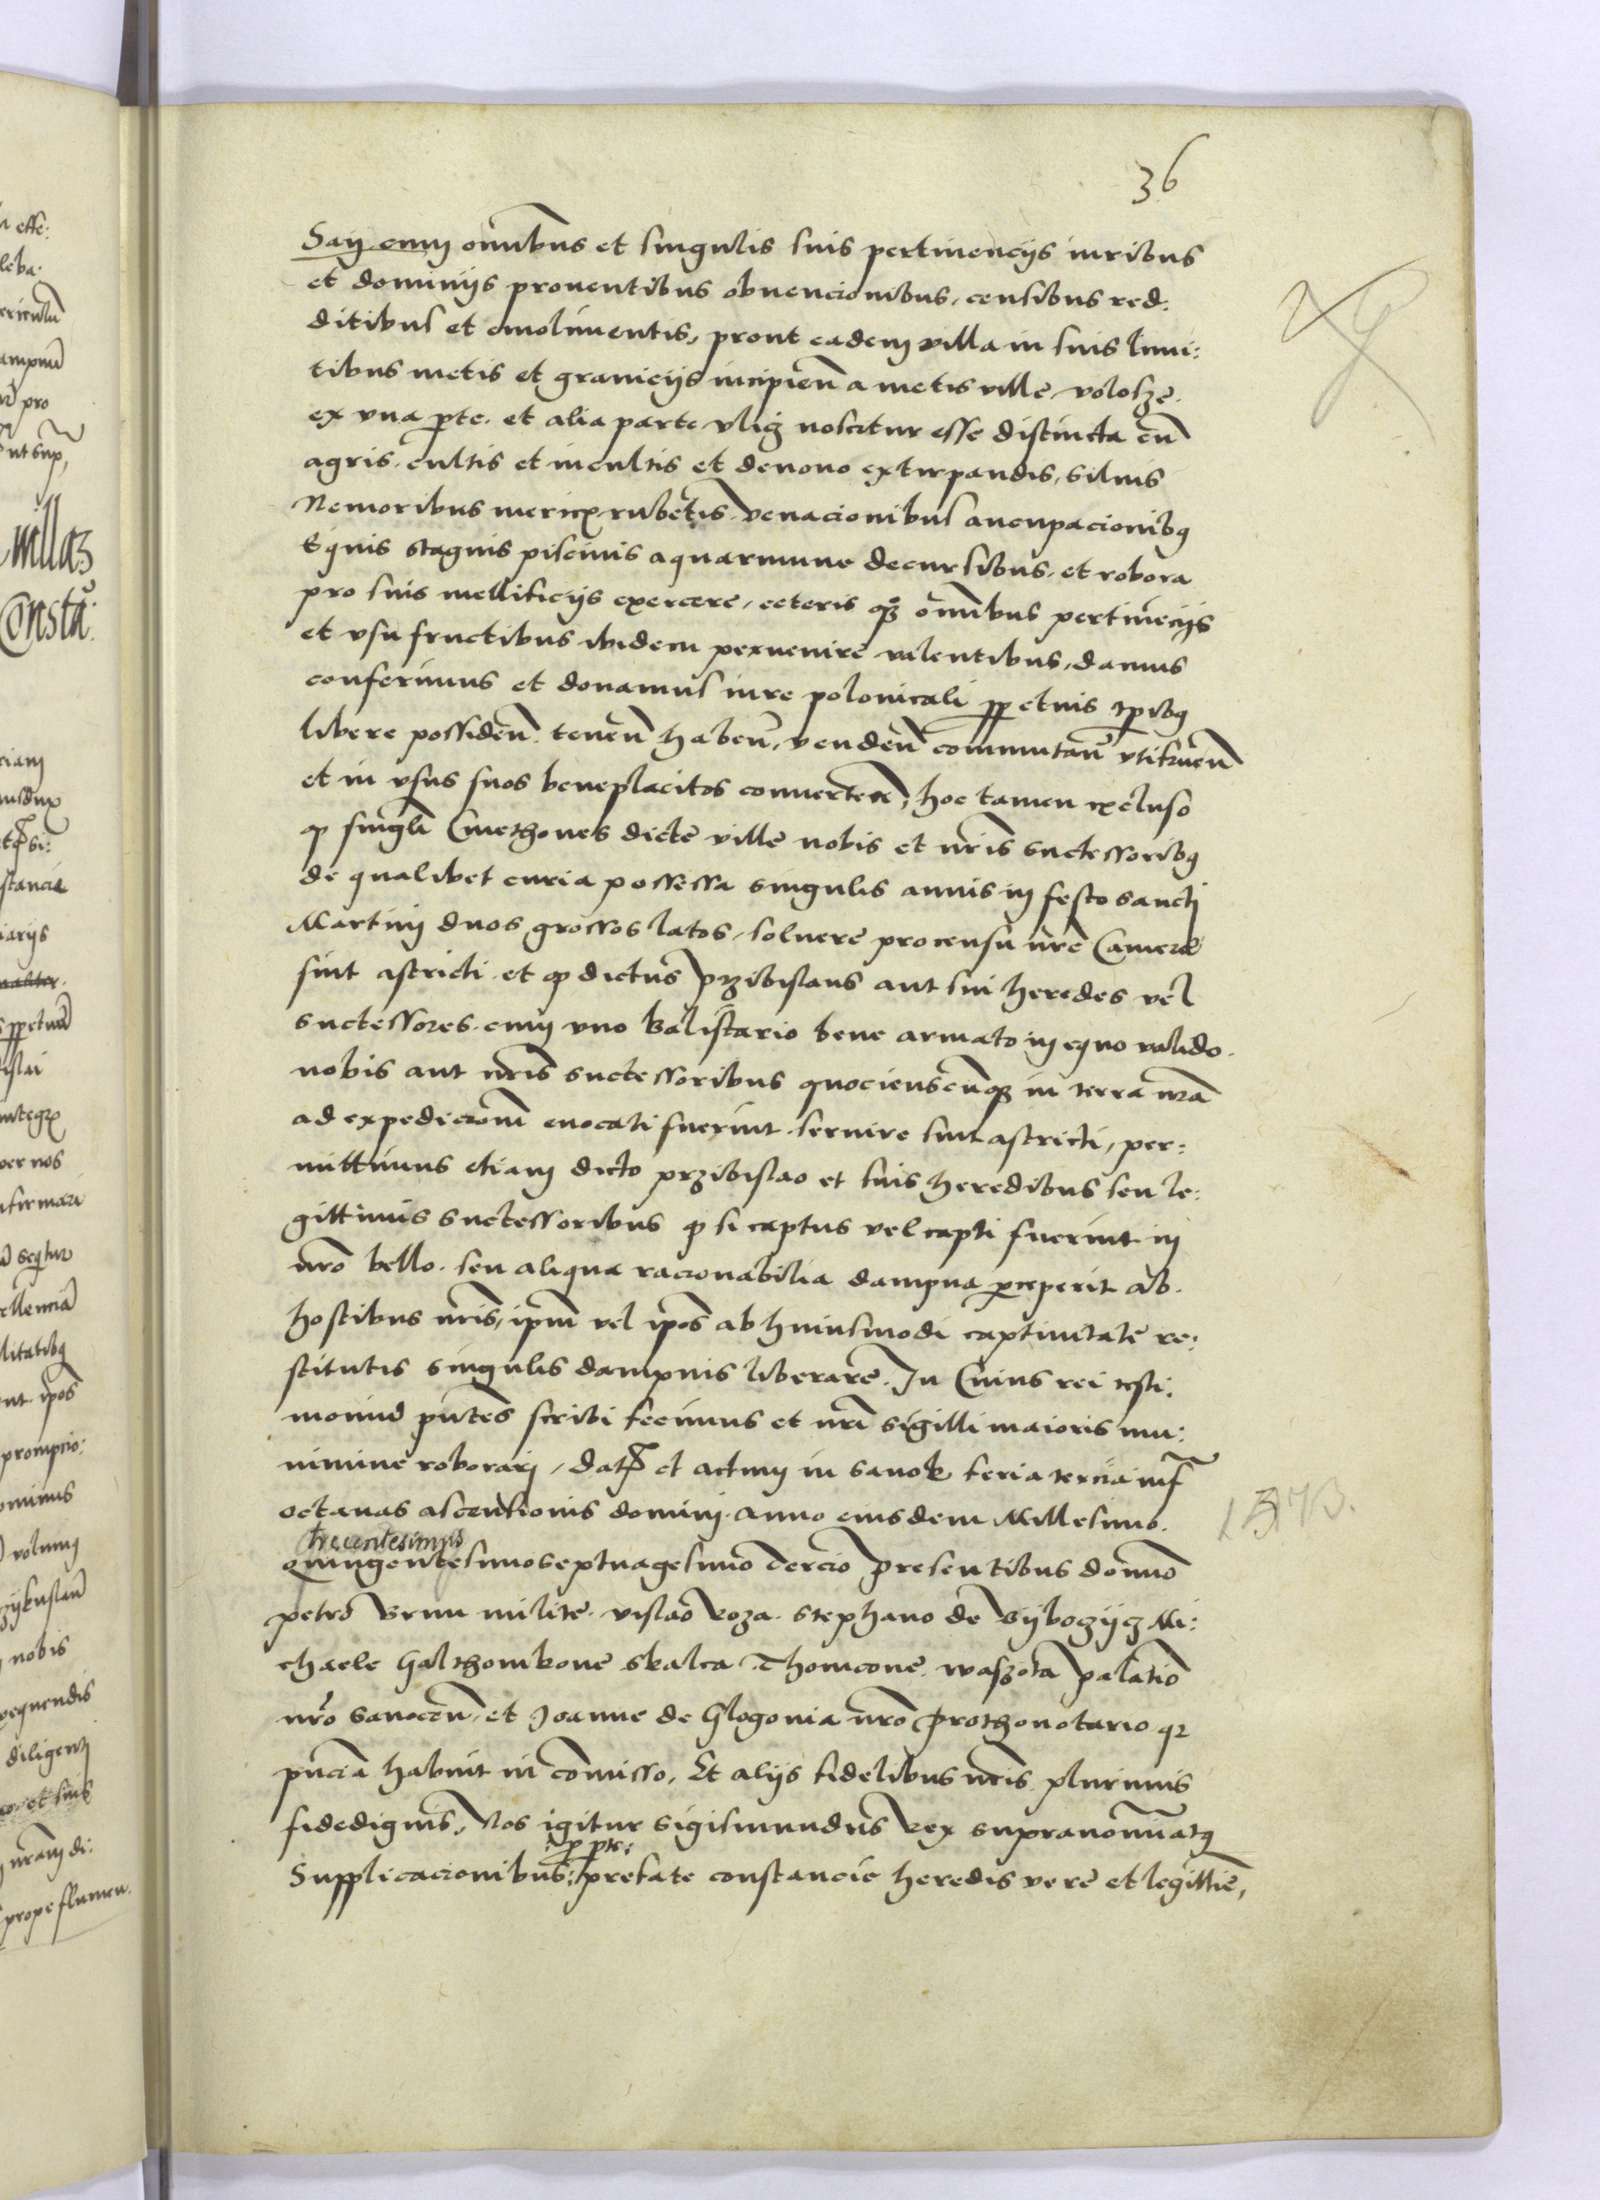 36
San cum omnibus et singulis suis pertinencijs iuribus
et dominijs prouentibus obuencionibus, censibus red:
ditibus et emolimentis, prout eadem villa in suis limi:
tibus metis et granicijs incipien a metis ville volosze.
ex vna pte. et alia parte vlig noscitur esse distincta cu
agris. cultis et incultis et denouo extirpandis, siluis
Nemoribus mericis rubetis venacionibus aucupacionibq
equis stagnis piscinis aquarumue decursibus. et robora
pro suis mellificijs exercere, ceteris qz omnibus pertinecijs
et vsufructibus ibidem peruenire valentibus, damus
conferimus et donamus iure polonicali ppetuis tpibq
libere possiden. tenen haben, venden commutan vtifruen
et in vsus suos beneplacitos conuerten, hoc tamen excluso
q singli Cmethones dicte ville nobis et nris successoribq
de qualibet curia possessa singulis annis in festo sancti
Martini duos grossos latos, soluere pro censu nre Camere
sint astricti et q dictus przibislaus aut sui heredes vel
successores. cum vno balistario bene armato in equo valido.
nobis aut nris successoribus quocienscunqz in terra nra
ad expedicionem euocati fuerint seruire sint astricti, per:
mittimus etiam dicto przibislao et suis heredibus seu le:
gittimis successoribus q si captus vel capti fuerint in
nro bello. seu aliqua racionabilia dampna pceperit ab.
hostibus nris, ipm vel ipos ab huiusmodi captiuitate re:
stitutis singulis dampnis liberare. In Cuius rei testi:
moniu pntes scribi fecimus et nri sigilli maioris mu:
nimine roborari, dat et actum in sanok feria tercia inf
octauas ascensionis domini. anno eiusdem Millesimo.
1373.
trecentesimo
quingentesimo septuagesimo tercio presentibus domino
petro brun milite. vislao roza. stephano de wybozijcz Mi:
chaele Galthombone skalca Thomcone. waszota palatio
nro sanocen, et Joanne de Glogouia nro prothonotario qz
pncia habuit in comisso, Et alijs fidelibus nris plurimis
fidedignis, Nos igitur sigismundus rex supranominatq
: p pte:
Supplicacionibus: prefate constancie heredis vere et legittie,